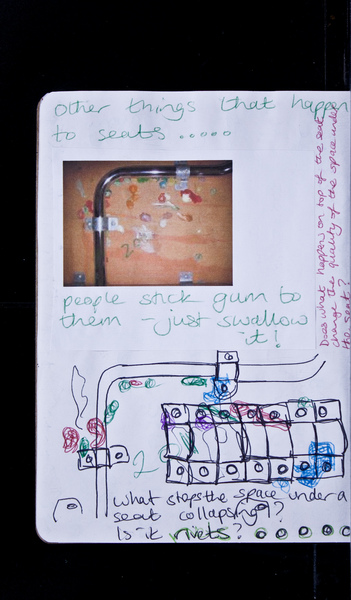 Other things that happen
to seats .....
Does what happen on top of the seat
change the quality of the space under
the seat?
people stick gum to
them - just swallow
it!
2
What stops the space under a
seat collapsing?
Is it rivets?